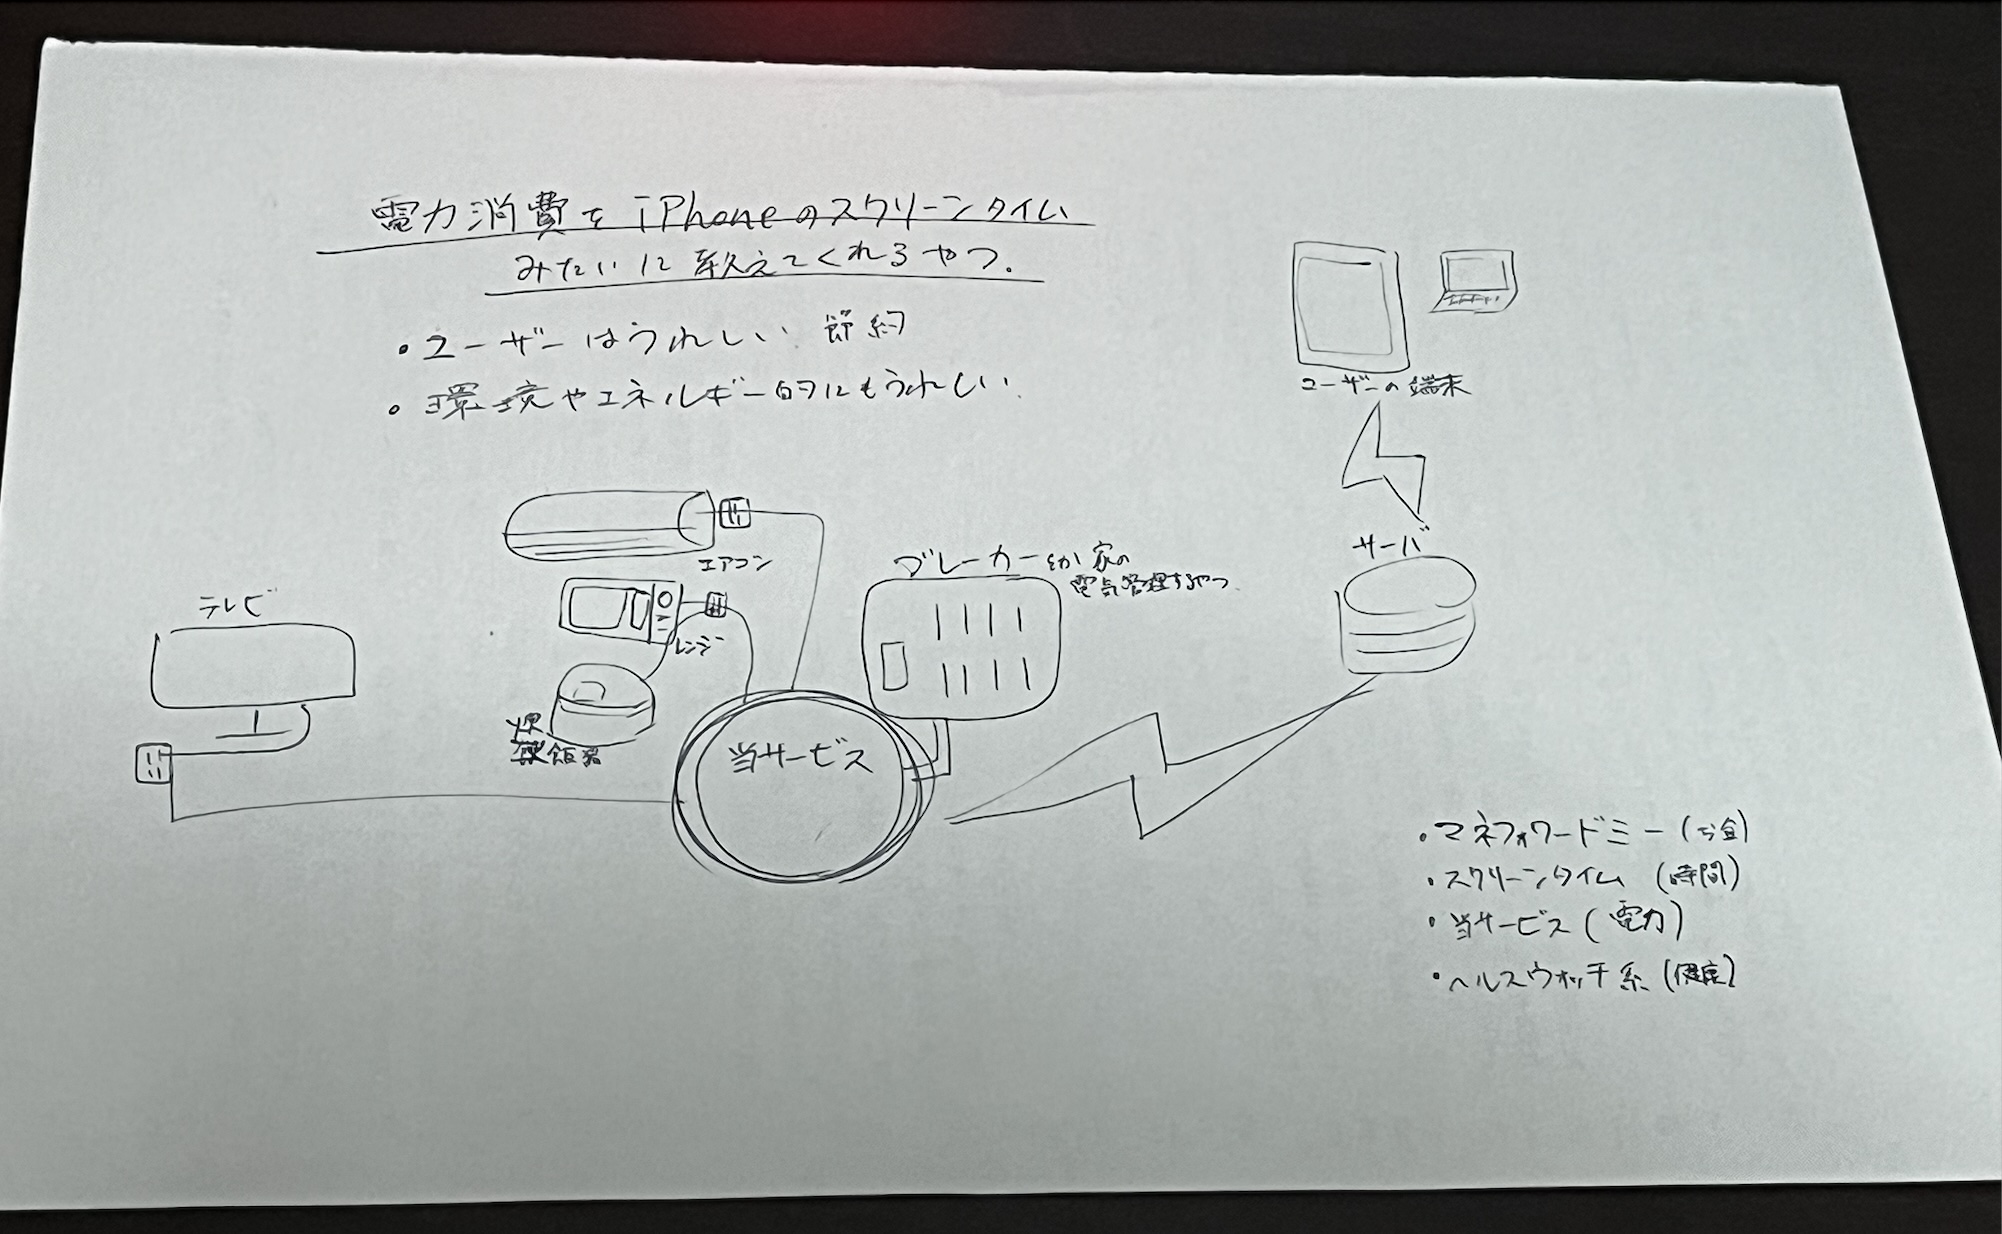 電力消費を iPhoneのスクリーンタイム
みたいに教えてくれるやつ.
・ユーザーはうれしい 節約
・環境やエネルギー的にもうれしい
ユーザーの端末
サーバ
エアコン
ブレーカーとか家の
電気管理するやつ
テレビ
レンジ
炊飯器
当サービス
・マネフォワードミー (お金)
・スクリーンタイム (時間)
・当サービス (電力)
・ヘルスウォッチ系 (健康)